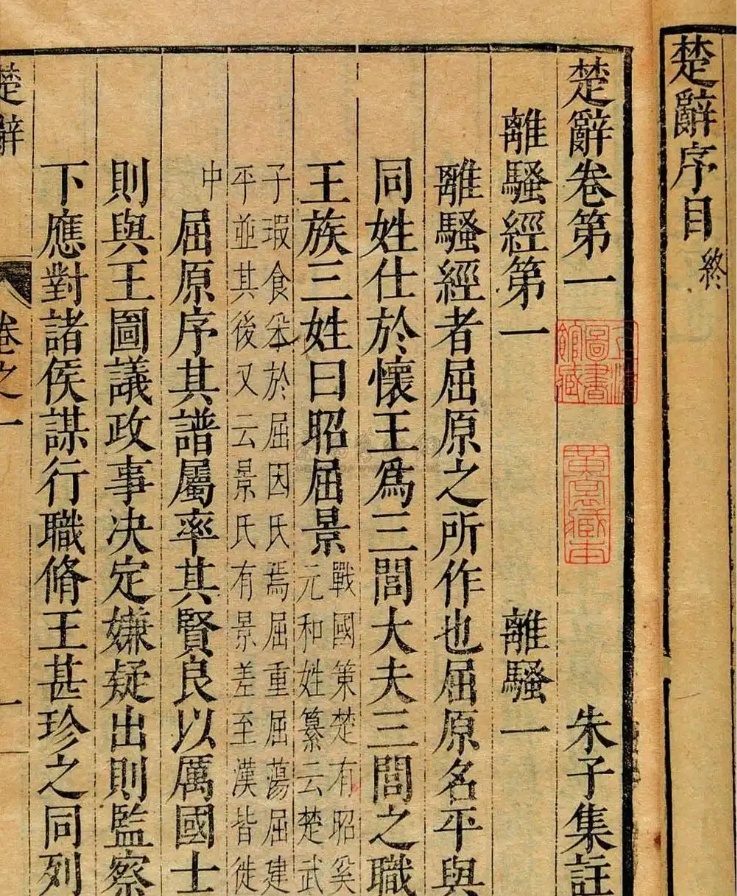 楚辭序目終
楚辭卷第一　朱子集註
離騷經第一　離騷一
離騷經者屈原之所作也屈原名平與
同姓仕於懷王爲三閭大夫三閭之職
王族三姓曰昭屈景
戰國策楚有昭奚
元和姓纂云楚武
子瑕食采於屈因氏焉屈重屈蕩屈建
平並其後又云景氏有景差至漢皆徙
中
屈原序其譜屬率其賢良以厲國士
則與王圖議政事決定嫌疑出則監察
下應對諸侯謀行職脩王甚珍之同列
楚辭
卷之一
一